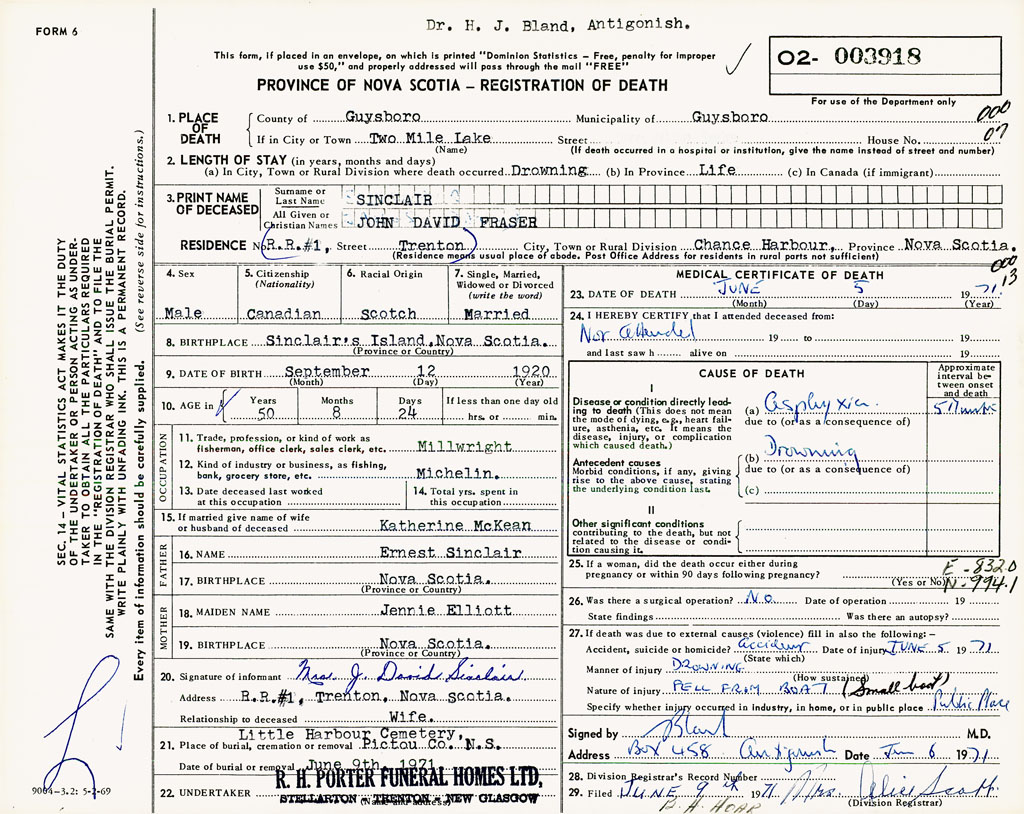 Dr. H. J. Bland, Antigonish.
FORM 6
This form, if placed in an envelope, on which is printed "Dominion Statistics – Free, penalty for improper
use $50," and properly addressed will pass through the mail "FREE"
O2- 003918
PROVINCE OF NOVA SCOTIA – REGISTRATION OF DEATH
For use of the Department only
000
07
1. PLACE OF DEATH
County of Guysboro Municipality of Guysboro
If in City or Town Two Mile Lake Street House No.
(Name) (If death occurred in a hospital or institution, give the name instead of street and number)
2. LENGTH OF STAY (in years, months and days)
(a) In City, Town or Rural Division where death occurred Drowning (b) In Province Life (c) In Canada (if immigrant)
3. PRINT NAME OF DECEASED
Surname or Last Name SINCLAIR
All Given or Christian Names JOHN DAVID FRASER
RESIDENCE No R.R.#1, Street Trenton City, Town or Rural Division Chance Harbour, Province Nova Scotia.
(Residence means usual place of abode. Post Office Address for residents in rural parts not sufficient)
000
13
4. Sex
Male
5. Citizenship
(Nationality)
Canadian
6. Racial Origin
Scotch
7. Single, Married,
Widowed or Divorced
(write the word)
Married
8. BIRTHPLACE Sinclair's Island, Nova Scotia.
(Province or Country)
9. DATE OF BIRTH September 12 1920
(Month) (Day) (Year)
10. AGE in Years Months Days If less than one day old
50 8 24 hrs. or min.
OCCUPATION
11. Trade, profession, or kind of work as
fisherman, office clerk, sales clerk, etc. Millwright
12. Kind of industry or business, as fishing,
bank, grocery store, etc. Michelin.
13. Date deceased last worked
at this occupation
14. Total yrs. spent in
this occupation
15. If married give name of wife
or husband of deceased Katherine McKean
FATHER
16. NAME Ernest Sinclair
17. BIRTHPLACE Nova Scotia.
(Province or Country)
MOTHER
18. MAIDEN NAME Jennie Elliott
19. BIRTHPLACE Nova Scotia.
(Province or Country)
20. Signature of informant Mrs. J. David Sinclair
Address R.R.#1, Trenton, Nova Scotia.
Relationship to deceased Wife.
Little Harbour Cemetery,
21. Place of burial, cremation or removal Pictou Co. N.S.
Date of burial or removal June 9th 1971
22. UNDERTAKER R. H. PORTER FUNERAL HOMES LTD,
STELLARTON - TRENTON - NEW GLASGOW
(Name and address)
MEDICAL CERTIFICATE OF DEATH
23. DATE OF DEATH JUNE 5 1971
(Month) (Day) (Year)
24. I HEREBY CERTIFY that I attended deceased from:
Not attended 19 to 19
and last saw h alive on 19
CAUSE OF DEATH
Approximate
interval be-
tween onset
and death
I
Disease or condition directly lead-
ing to death (This does not mean
the mode of dying, e.g., heart fail-
ure, asthenia, etc. It means the
disease, injury, or complication
which caused death.)
(a) Asphyxia 5 Minutes
due to (or as a consequence of)
Antecedent causes
Morbid conditions, if any, giving
rise to the above cause, stating
the underlying condition last.
(b) Drowning
due to (or as a consequence of)
(c)
II
Other significant conditions
contributing to the death, but not
related to the disease or condi-
tion causing it.
25. If a woman, did the death occur either during
pregnancy or within 90 days following pregnancy?
(Yes or No)
E-832.0
N-994.1
26. Was there a surgical operation? NO Date of operation 19
State findings Was there an autopsy?
27. If death was due to external causes (violence) fill in also the following:–
Accident, suicide or homicide? Accident Date of injury JUNE 5 1971
(State which)
Manner of injury DROWNING
(How sustained)
Nature of injury FELL FROM BOAT (Small boat)
Specify whether injury occurred in industry, in home, or in public place Public Place
Signed by Bland M.D.
Address Box 458 Antigonish Date Jun 6 1971
28. Division Registrar's Record Number
29. Filed JUNE 9th 1971 Mrs. Alice Scott
(Division Registrar)
B. H. HOAR
SEC. 14 – VITAL STATISTICS ACT MAKES IT THE DUTY
OF THE UNDERTAKER OR PERSON ACTING AS UNDER-
TAKER TO OBTAIN ALL THE PARTICULARS REQUIRED
IN THE "REGISTRATION OF DEATH" AND TO FILE THE
SAME WITH THE DIVISION REGISTRAR WHO SHALL ISSUE THE BURIAL PERMIT.
WRITE PLAINLY WITH UNFADING INK. THIS IS A PERMANENT RECORD.
Every item of information should be carefully supplied. (See reverse side for instructions.)
9004–3.2: 5-2-69